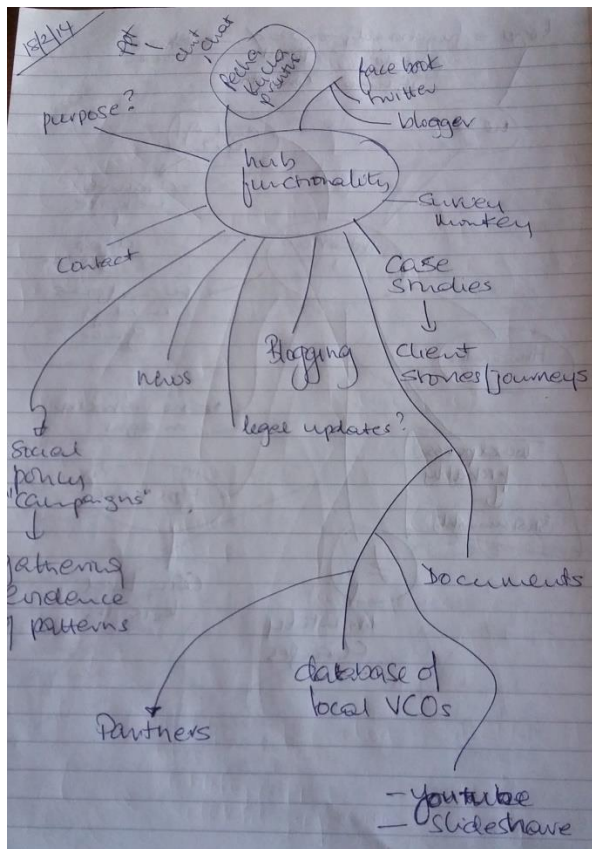 18/2/14
chit
chat
Pecha
Kucha
facebook
twitter
blogger
purpose?
hub
functionality
Survey
monkey
Contact
Case
Studies
client
stories/journeys
news
Blogging
legal updates?
Social
policy
"campaigns"
gathering
evidence
patterns
Documents
database of
local VCOs
Partners
- youtube
- Slideshare